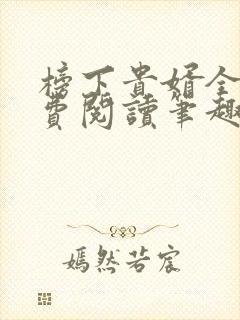 榜下貴婿全
費閱讀筆趣
嫣然若宸